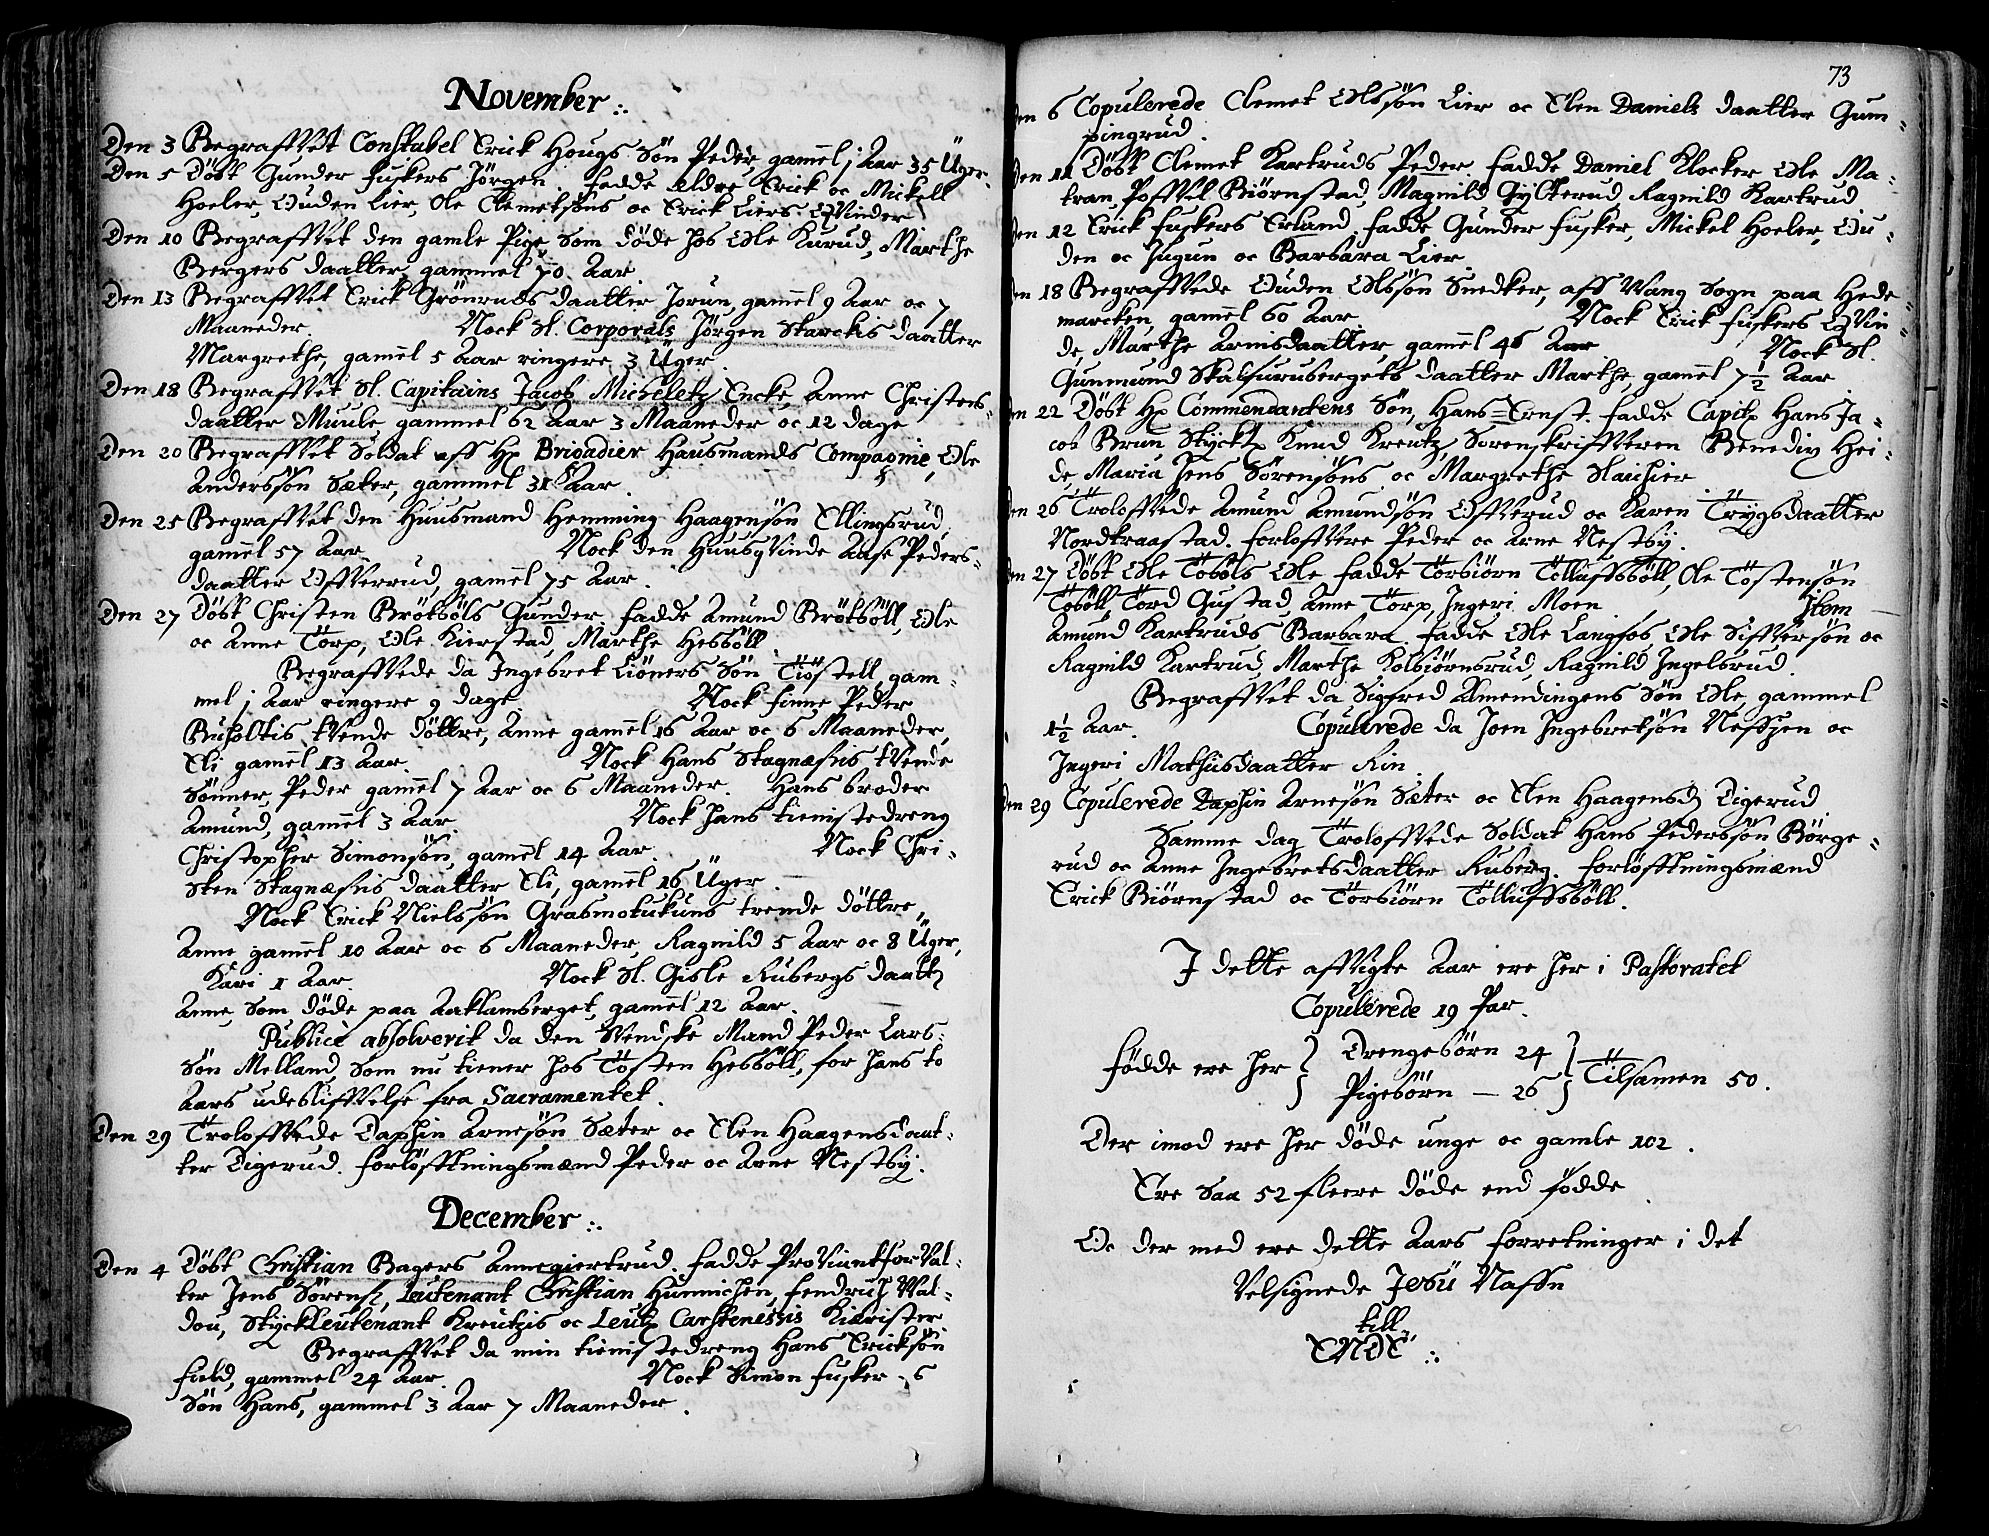 November :.
Den 3 Begraffvet Constabel Erick Hougs Søn Peder gam̄el j Aar 35 Üger.
Den 5 Døbt Gunder fuskers Jörgen. fadde Eldre Erick oc Mickell
Hoeler, Ouden Lier, Ole Clemetsøns oc Erick Liers Qvinder
Den 10 Begraffvet den gamle Pige Som døde hos Ole Kurud, Marthe
Bergers daatter, gammel 70 Aar
Den 13 Begraffvet Erick Grønruds daatter Jorun, gam̄el 9 Aar oc 7
Maaneder. Nock Sl. Corporals Jörgen Starckis daatter
Margrethe, gam̄el 5 Aar ringere 3 Üger.
Den 18 Begraffvet Sl. Capitains Jacob Micheletz Encke, Anne Christens-
daatter Muule, gammel 62 Aar 3 Maaneder oc 12 dage
Den 20 Begraffvet Soldat aff Hr Brigadier Hausmands Compagnie, Ole
Andersøn Sæter, gammel 31 Aar.
Den 25 Begraffvet den Huusmand Hemming Haagensøn Ellingsrud
gam̄el 57 Aar. Nock den Huusqvinde Aase Peders-
daatter Offverud, gam̄el 75 Aar.
Den 27 Døbt Christen Brötbøls Gunder. fadde Amund Brötbøll, Ole
oc Anne Törp, Ole Kierstad, Marthe Hesbøll
Begraffvede da Ingebret Liöners Søn Tiöstell gam-
mel j Aar ringere 9 dage. Nock finne Peder
Buholtis tvende döttre, Anne gam̄el 16 Aar oc 6 Maaneder,
Eli gam̄el 13 Aar. Nock Hans Stagnæssis tvende
Sønner, Peder gam̄el 7 Aar oc 6 Maaneder. Hans broder
Amund, gam̄el 3 Aar. Nock hans tienistedreng
Christopher Simonsøn, gam̄el 14 Aar. Nock Chri-
sten Stagnæssis daatter Eli, gam̄el 16 Üger.
Nock Erick Nielssøn Grasmokukuns trende döttre
Anne gam̄el 10 Aar oc 6 Maaneder, Ragnild 5 Aar oc 8 Üger,
Kari 1 Aar. Nock Sl. Gisle Rubergs daatter
Anne, Som døde paa Aaklamberget, gam̄el 12 Aar.
Publice absolverit da den Svendske Mand Peder Lars-
søn Melland Som nu tiener hos Tösten Hesbøll, for hans to
Aars udebliffvelse fra Sacramentet.
Den 29 Troloffvede Daphin Arnesøn Sæter oc Elen Haagensdaat-
ter Digerud. forlöfftningsmænd Peder oc Arne Nestby.
December :.
Den 4 Døbt Christian Bagers Annegiertrud. fadde Proviantforval-
ter Jens Sørens, Leutenant Christian Hunnichen, fendrich Wal-
dou, Styckleutenant Kreutzis oc Leutn Carstenessis Kiærister
Begraffvet da min tienistedreng Hans Ericksøn
field, gammel 24 Aar. Nock Simon fusker - s
Søn Hans, gammel 3 Aar 7 Maaneder.
73
Den 6 Copulerede Clemet Olssøn Lier oc Elen Daniels daatter Gum-
pingrud.
Den 11 Døbt Clemet Kartruds Peder. fadde Daniel Klocker Ole Ma-
tran, Poffvel Biørnstad, Magnild Gysterud, Ragnild Kartrud
Den 12 Erick fuskers Erland. fadde Gunder fusker, Mickel Hoeler, Ou-
den oc Jugun oc Barbara Lier.
Den 18 Begraffvede Ouden Olssøn Snedker, aff Wang Sogn paa Hede-
marcken, gam̄el 60 Aar Nock Erick fuskers Qvin-
de, Marthe Arnisdaatter, gam̄el 46 Aar Nock Sl.
Gunmund Skalsurubergets daatter Marthe, gam̄el 7½ Aar
Den 22 Døbt Hr Commendantens Søn, Hans=Ernst. fadde Capitn Hans Ja-
cob Brun Stycktn Knud Kreutz, Sorenskriffveren Benedix Hei-
de, Maria Jens Sørensøns, oc Margrethe Slachier
Den 26 Troloffvede Amund Amundsøn Offverud oc Karen Trygsdaatter
Nordtraastad. forloffvere Peder oc Arne Nestby.
Den 27 Døbt Ole Töbøls Ole. fadde Torbiörn Tölluffsbøll, Ole Töstensøn
Töbøll, Törd Gustad, Anne Törp, Ingeri Moen. Item
Amund Kartruds Barbara. fadde Ole Langsos, Ole Siffversøn oc
Ragnild Kartrud, Marthe Kolbiörnsrud, Ragnild Ingelsrud.
Begraffvet da Sigfred Almendingens Søn Ole, gammel
1½ Aar. Copulerede da Joen Ingebretsøn Neffsen oc
Ingeri Mathiisdaatter Rin.
Den 29 Copulerede Daphin Arnesøn Sæter oc Elen Haagensd Digerud
Samme dag Troloffvede Soldat Hans Pederssøn Börge-
rud oc Anne Ingebretsdaatter Ruberg. forlöfftningsmænd
Erick Biörnstad oc Torbiörn Tölluffsbøll.
I dette affvigte Aar ere her i Pastoratet
Copulerede 19 Par.
fødde ere her } Drengebørn 24 } Tilsamen 50.
Pigebørn — 26
Der imod ere her døde unge oc gamle 102.
Ere Saa 52 fleere døde end fødde
Oc der med ere dette Aars forretninger i det
Velsignede Jesü Naffn
till
ENDE :.